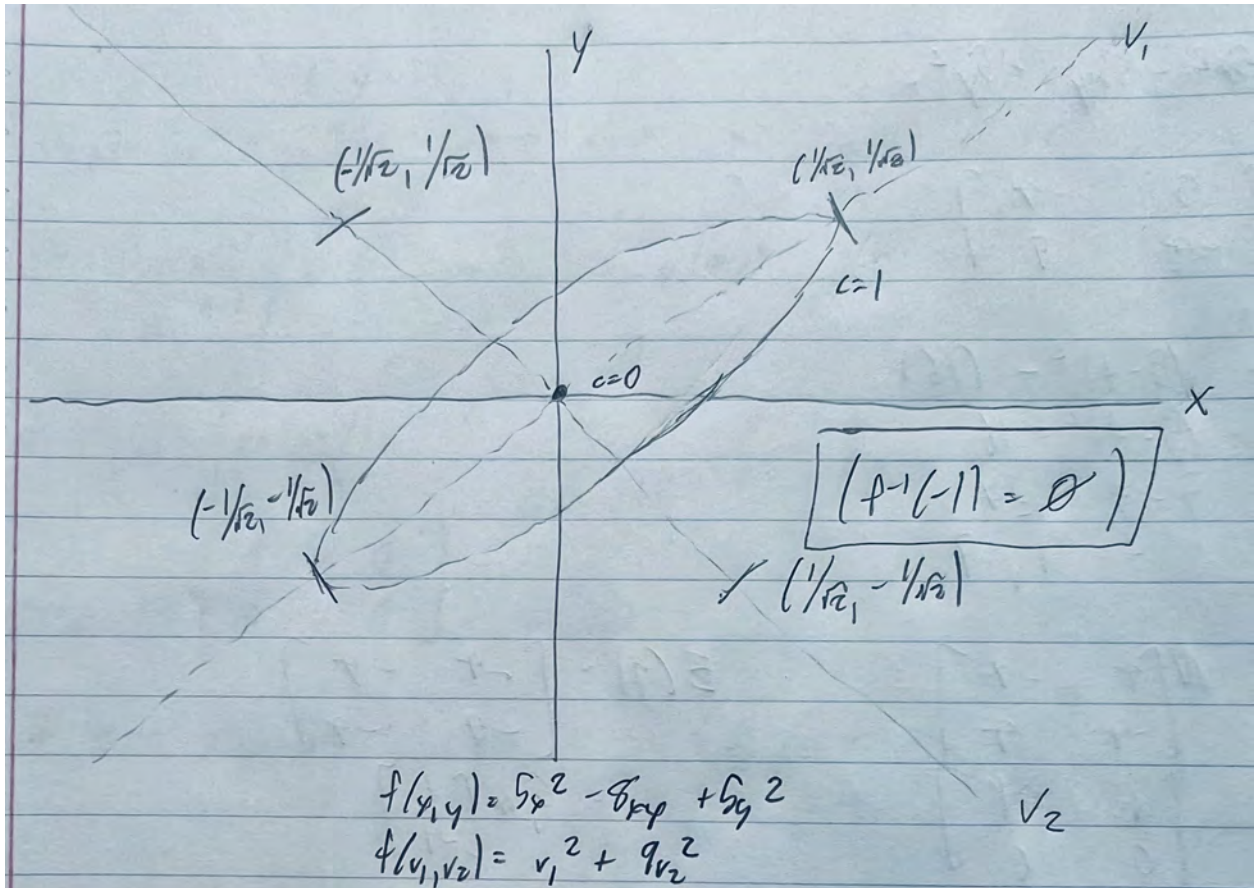 y
V₁
(-1/√2, 1/√2)
(1/√2, 1/√2)
c=1
c=0
x
(f⁻¹(-1) = ∅)
(-1/√2, -1/√2)
(1/√2, -1/√2)
f(x,y) = 5x² - 8xy + 5y²
V₂
f(v₁,v₂) = v₁² + 9v₂²